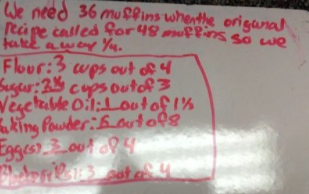 We need 36 muffins when the origanal
recipe called for 48 muffins so we
take away ¼.
Flour: 3 cups out of 4
Sugar: 2¼ cups out of 3
Vegetable Oil: 1 out of 1⅓
Baking Powder: 6 out of 8
Eggs: 3 out of 4
3 out of 4